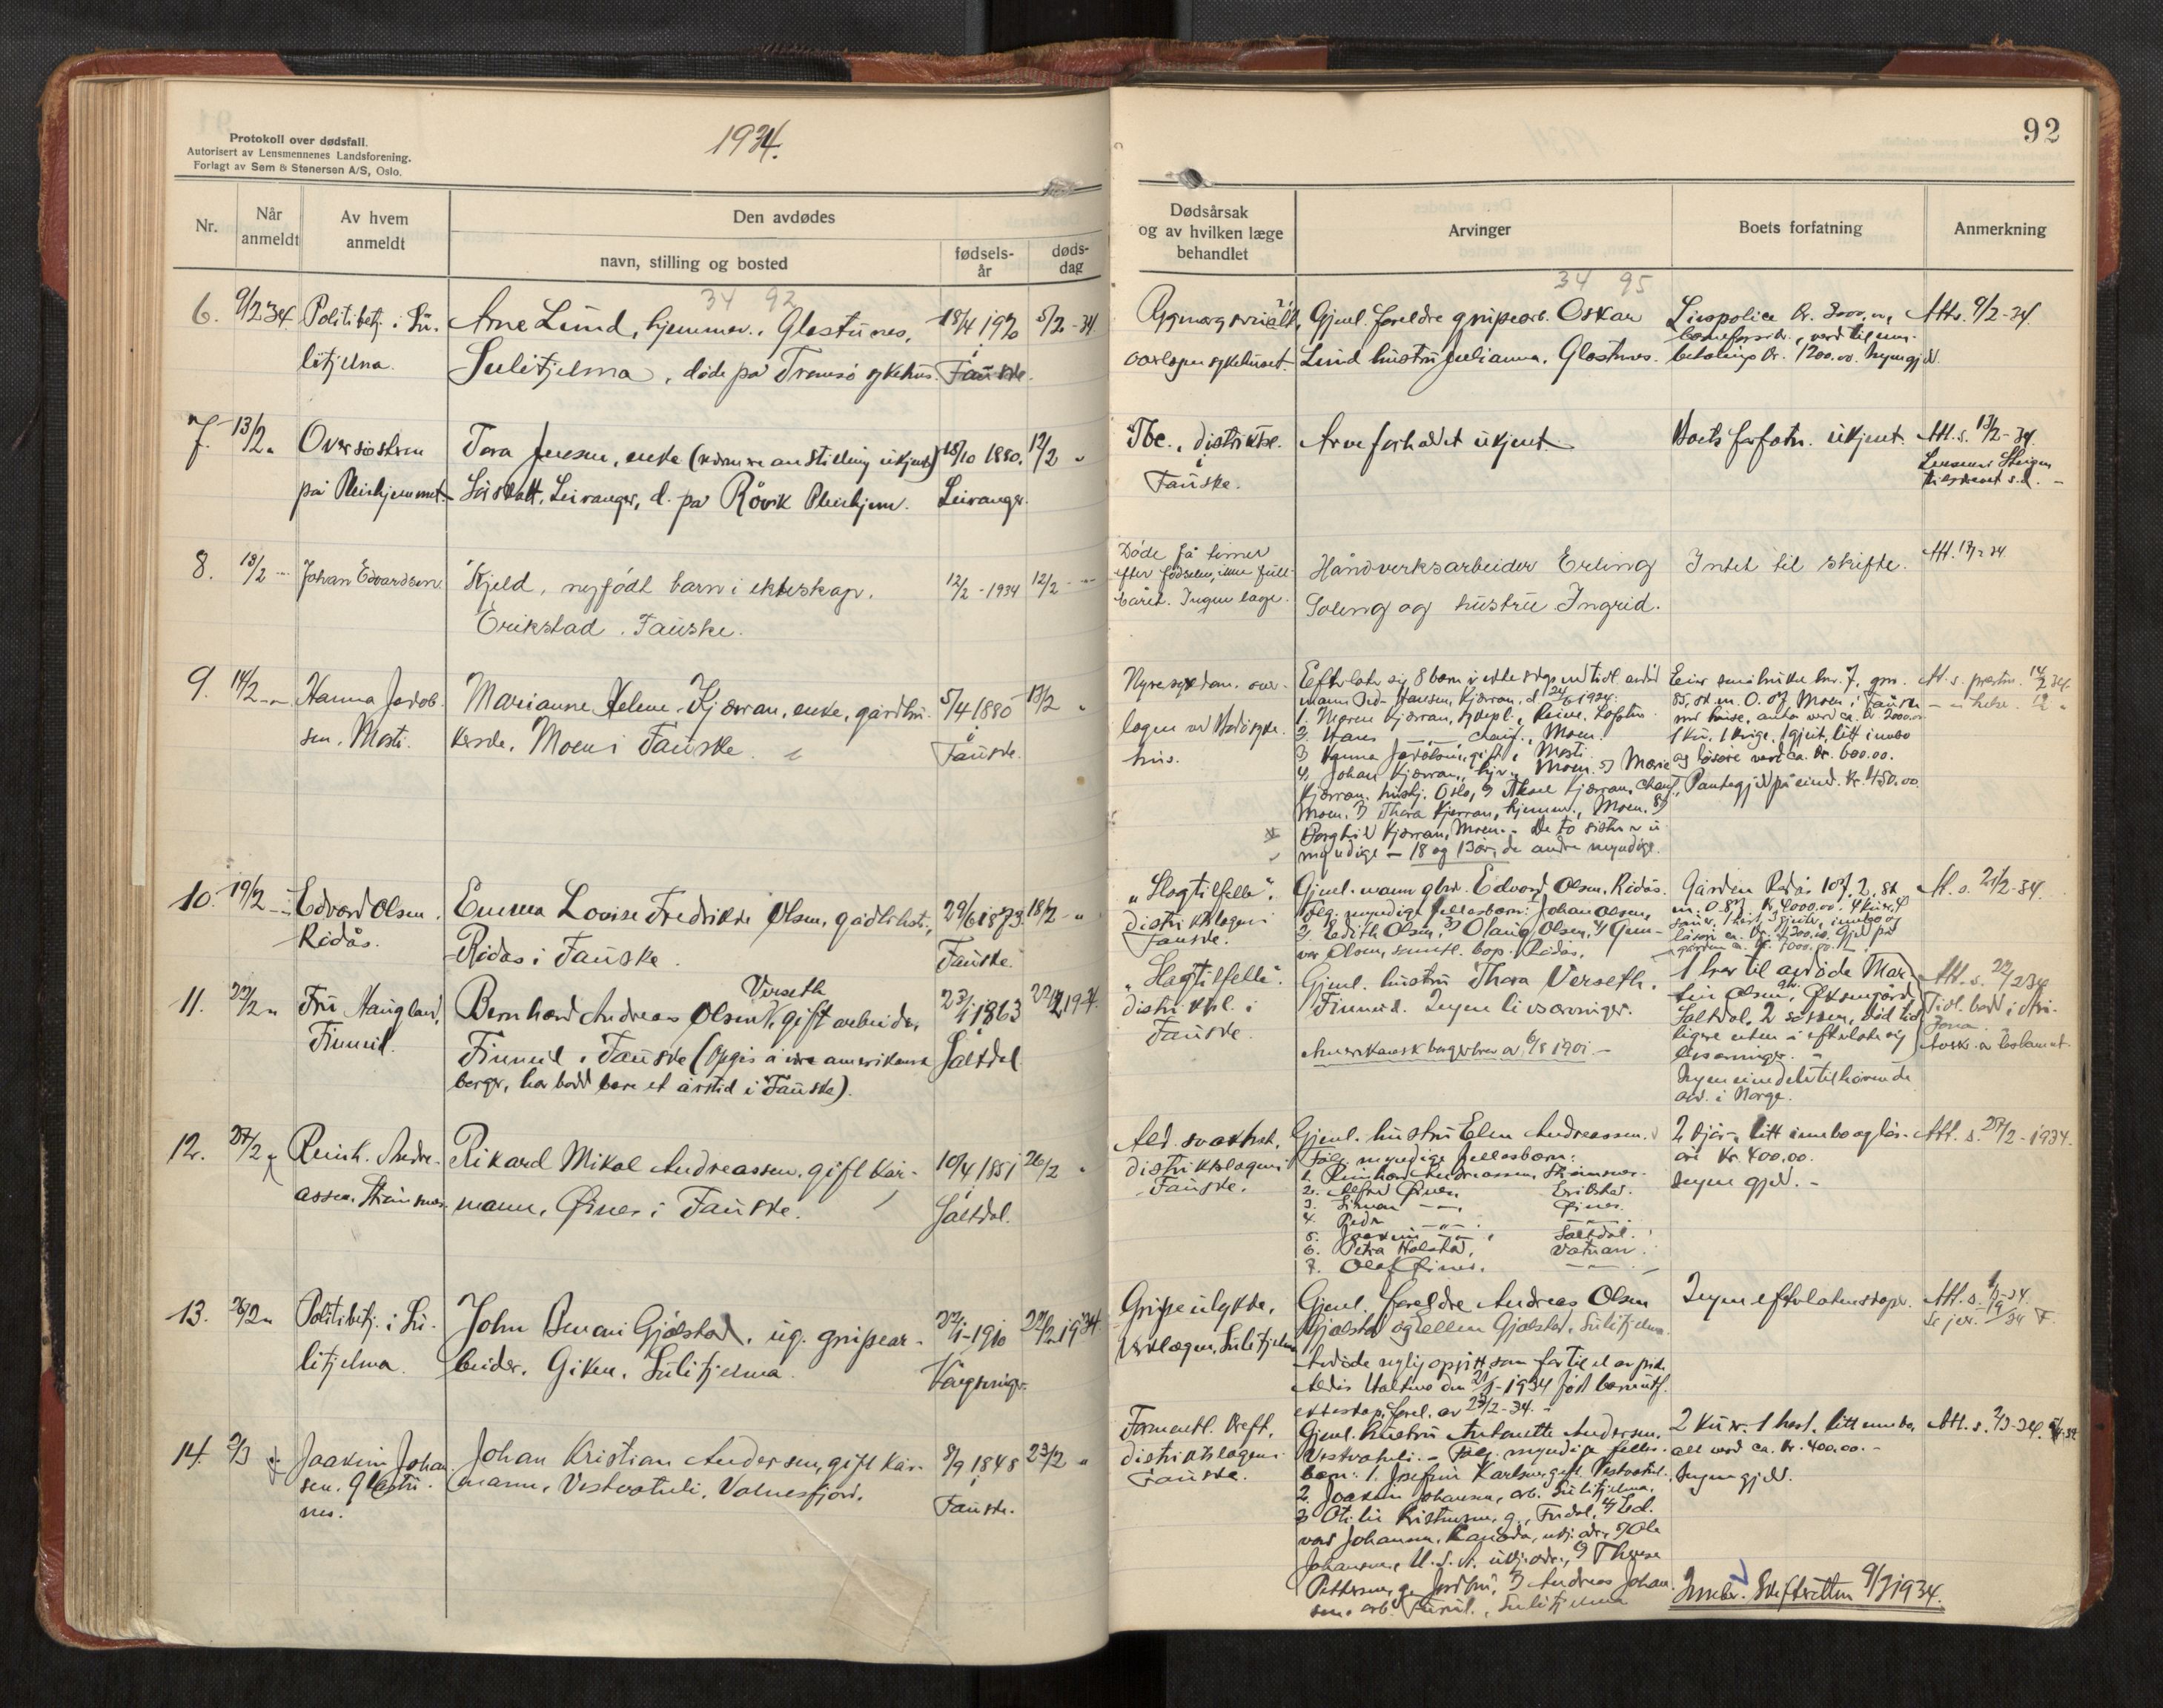 Protokoll over dødsfall.
Autorisert av Lensmennenes Landsforening.
Forlagt av Sem & Stenersen A/S, Oslo.
1934.
Nr.
Når anmeldt
Av hvem anmeldt
Den avdødes
navn, stilling og bosted
fødsels-år
døds-dag
34 92
6. 9/2 34 Politibetj. i Su- Arne Lund, hjemmev. Glastunes, 18/4 1920 5/2 - 34
litjelma. Sulitjelma, døde på Tromsø sykehus. Fauske.
7. 13/2 „ Oversøstren Tora Jensen, enke (nærmere anstilling ukjent) 18/10 1880. 12/2 „
på Pleiehjemmet Leiranger, d. på Røvik Pleiehjem. Leiranger.
8. 13/2 Johan Edvardsen Kjeld, nyfødt barn i ekteskap. 12/2 - 1934 12/2
Erikstad. Fauske.
9. 14/2 Hanna Jakob- Marianne Helene Kjærran, enke, gårdbru- 5/4 1880 13/2 „
sen, Mosti. kerske, Moen i Fauske. Fauske.
10. 19/2 Edvard Olsen, Emma Lovise Fredrikke Olsen, 29/6 1873. 18/2 „
Ridås. Ridås i Fauske. Fauske.
Verseth
11. 22/2 „ Fru Haugland, Bernhard Andreas Olsen, gift arbeider, 23/1 1863 22/2 1934.
Finneid. Finneid i Fauske (Opgis å være amerikansk Saltdal
borger, har bodd bare et årstid i Fauske).
12. 27/2 „ Reinh. Andre- Rikard Mikal Andreassen, gift kår- 10/4 1851 26/2 „
assen, Strømsnes. mann, Øines i Fauske. Saltdal.
13. 26/2 „ Politibetj. i Su- John Gjølstad, ug. grubear- 22/1 - 1910 22/2 1934
litjelma. beider, Giken, Sulitjelma. Kongsvinger.
14. 2/3 Joakim Johan- Johan Kristian Andersen, gift kår- 8/9 1848 23/2 „
sen, Glastu- mann, Vestvatnli, Valnesfjord. Fauske.
nes.
92
Dødsårsak og av hvilken læge behandlet
Arvinger
Boets forfatning
Anmerkning
34 95
Gjenl. foreldre grubearb. Oskar Livspolice kr. 3000,00, Att. 9/2 - 34.
overlægen sykehuset. Lund hustru Julianna, Glastunes. betalings kr. 1200.00. Ingen gjeld.
Tbc., distriktsl. Arveforholdet ukjent. Boets forfatn. ukjent. Att. s. 13/2 - 34.
i Fauske. Lensm. i Steigen
tilskrevet s.d.
Døde få timer Håndverksarbeider Erling Intet til skifte. Att. 13/2 34
efter fødselen, ikke full- Soleng og hustru Ingrid.
båret. Ingen læge.
Nyresykdom, over-
lægen ved Bodø syke-
hus.
Efterlater sig 8 barn i ekteskap med tidl. avdød
mann Hansen, Kjærran, d. 24/6 1924.
1. Maren Kjærran, Reine, Lofoten.
2. Hans chauf., Moen.
3 Hanna Jakobsen, gift, Mosti
4, Johan Kjærran, Moen. 5) Marie
Kjærran, hushj. Oslo, 6) Kjærran, chauf.
Moen. 7) Thora Kjærran, hjemmev., Moen. 8)
Borghild Kjærran, Moen. De to siste er u-
myndige - 18 og 13 år, de andre myndige.
Eier småbruket bnr. 7, gnr.
85, Moen i Fauske
med huse, antar verd ca. kr. 2000.00
1 ku, 1 kvige, 1 gjeit, litt innbo
og løsøre verd ca. kr. 600.00.
Pantegjeld på eiend. kr. 450.00.
Att. s. presten 14/2 34.
„Slagtilfelle". Gjenl. mann gbr. Edvard Olsen, Ridås. Gården Ridås 107, 2, sk Att. s. 21/2 - 34.
distriktslægen i Følg. myndige fellesbarn: Johan Olsen,
Fauske. 2. Edith Olsen, 3) Olaug Olsen, 4) Gun-
var Olsen, samtl. bop. Ridås.
m. 0.87 kr. 4000.00. 4 kuer, 4
sauer, 1 hest, 3 gjeiter, innbo og
løsøre ca. kr. 1200.00. Gjeld på
gården ca. kr. 1000.00.
„Slagtilfelle". Gjenl. hustru Thora Verseth,
distriktsl. i Finneid. Ingen livsarvinger.
Fauske. Amerikansk borgerbrev av 6/8 1901.
1 bror til avdøde Mar-
tin Olsen, Øksengård,
Saltdal, 2 søsken, død tid-
ligere uten å efterlate sig
livsarvinger.
Ingen eiendeler tilhørende
avd. i Norge.
Att. s. 22/2 34
Tidl. bodd i Ari-
zona.
testament.
Ald. svakhet, Gjenl. hustru Elen Andreassen. 2 kjør, litt innbo og løs- Att. s. 27/2 - 1934.
distriktslægen i Følg. myndige fellesbarn: øre kr. 400.00.
Fauske. 1. Reinhard Andreassen, Strømsnes. Ingen gjeld.
2. Alfred Øines, Erikstad.
3. Simon Øines.
4. Peder
5. Joakim Saltdal.
6. Petra Holstad, Vatnan.
7. Olaf Øines.
Grubeulykke, Gjenl. foreldre Andreas Olsen Ingen efterlatenskaper. Att. s. 1/3 - 34.
Verkslægen, Sulitjelma Gjølstad og Ellen Gjølstad, Sulitjelma.
Avdøde opgitt som far til et av pike
den 21/1 - 1934 født barn utf.
ekteskap, 23/2 - 34.
Formentl. kreft, Gjenl. hustru Antonette Andersen, 2 kuer, 1 hest, litt innbo, Att. s. 2/3 - 34.
distriktslægen i Vestvatnli. - Følg. myndige felles- alt verd ca. kr. 400.00.
Fauske. barn: 1. Josefine Karlsen, gift, Vestvatnli. Ingen gjeld.
2. Joakim Johansen, arb. Sulitjelma.
3 Otilie Kristensen, g., 4) Ed-
vard Johansen, Kanada, ukj. adr., 5) Ole
Johansen, U.S.A. ukj. adr., 6) Therese
Pettersen, 7) Andreas Johan-
sen, arb. Sulitjelma
Innber. Skifteretten 9/3 1934.